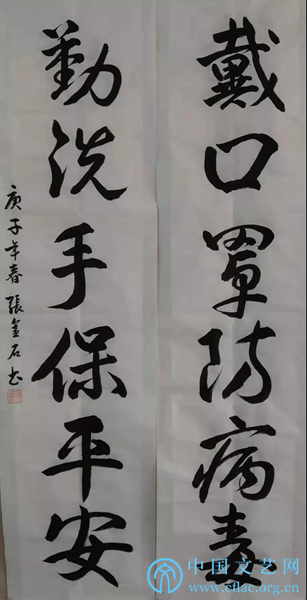 戴口罩防病毒
勤洗手保平安
庚子年春張金石书
中国文艺网
www.cflac.org.cn